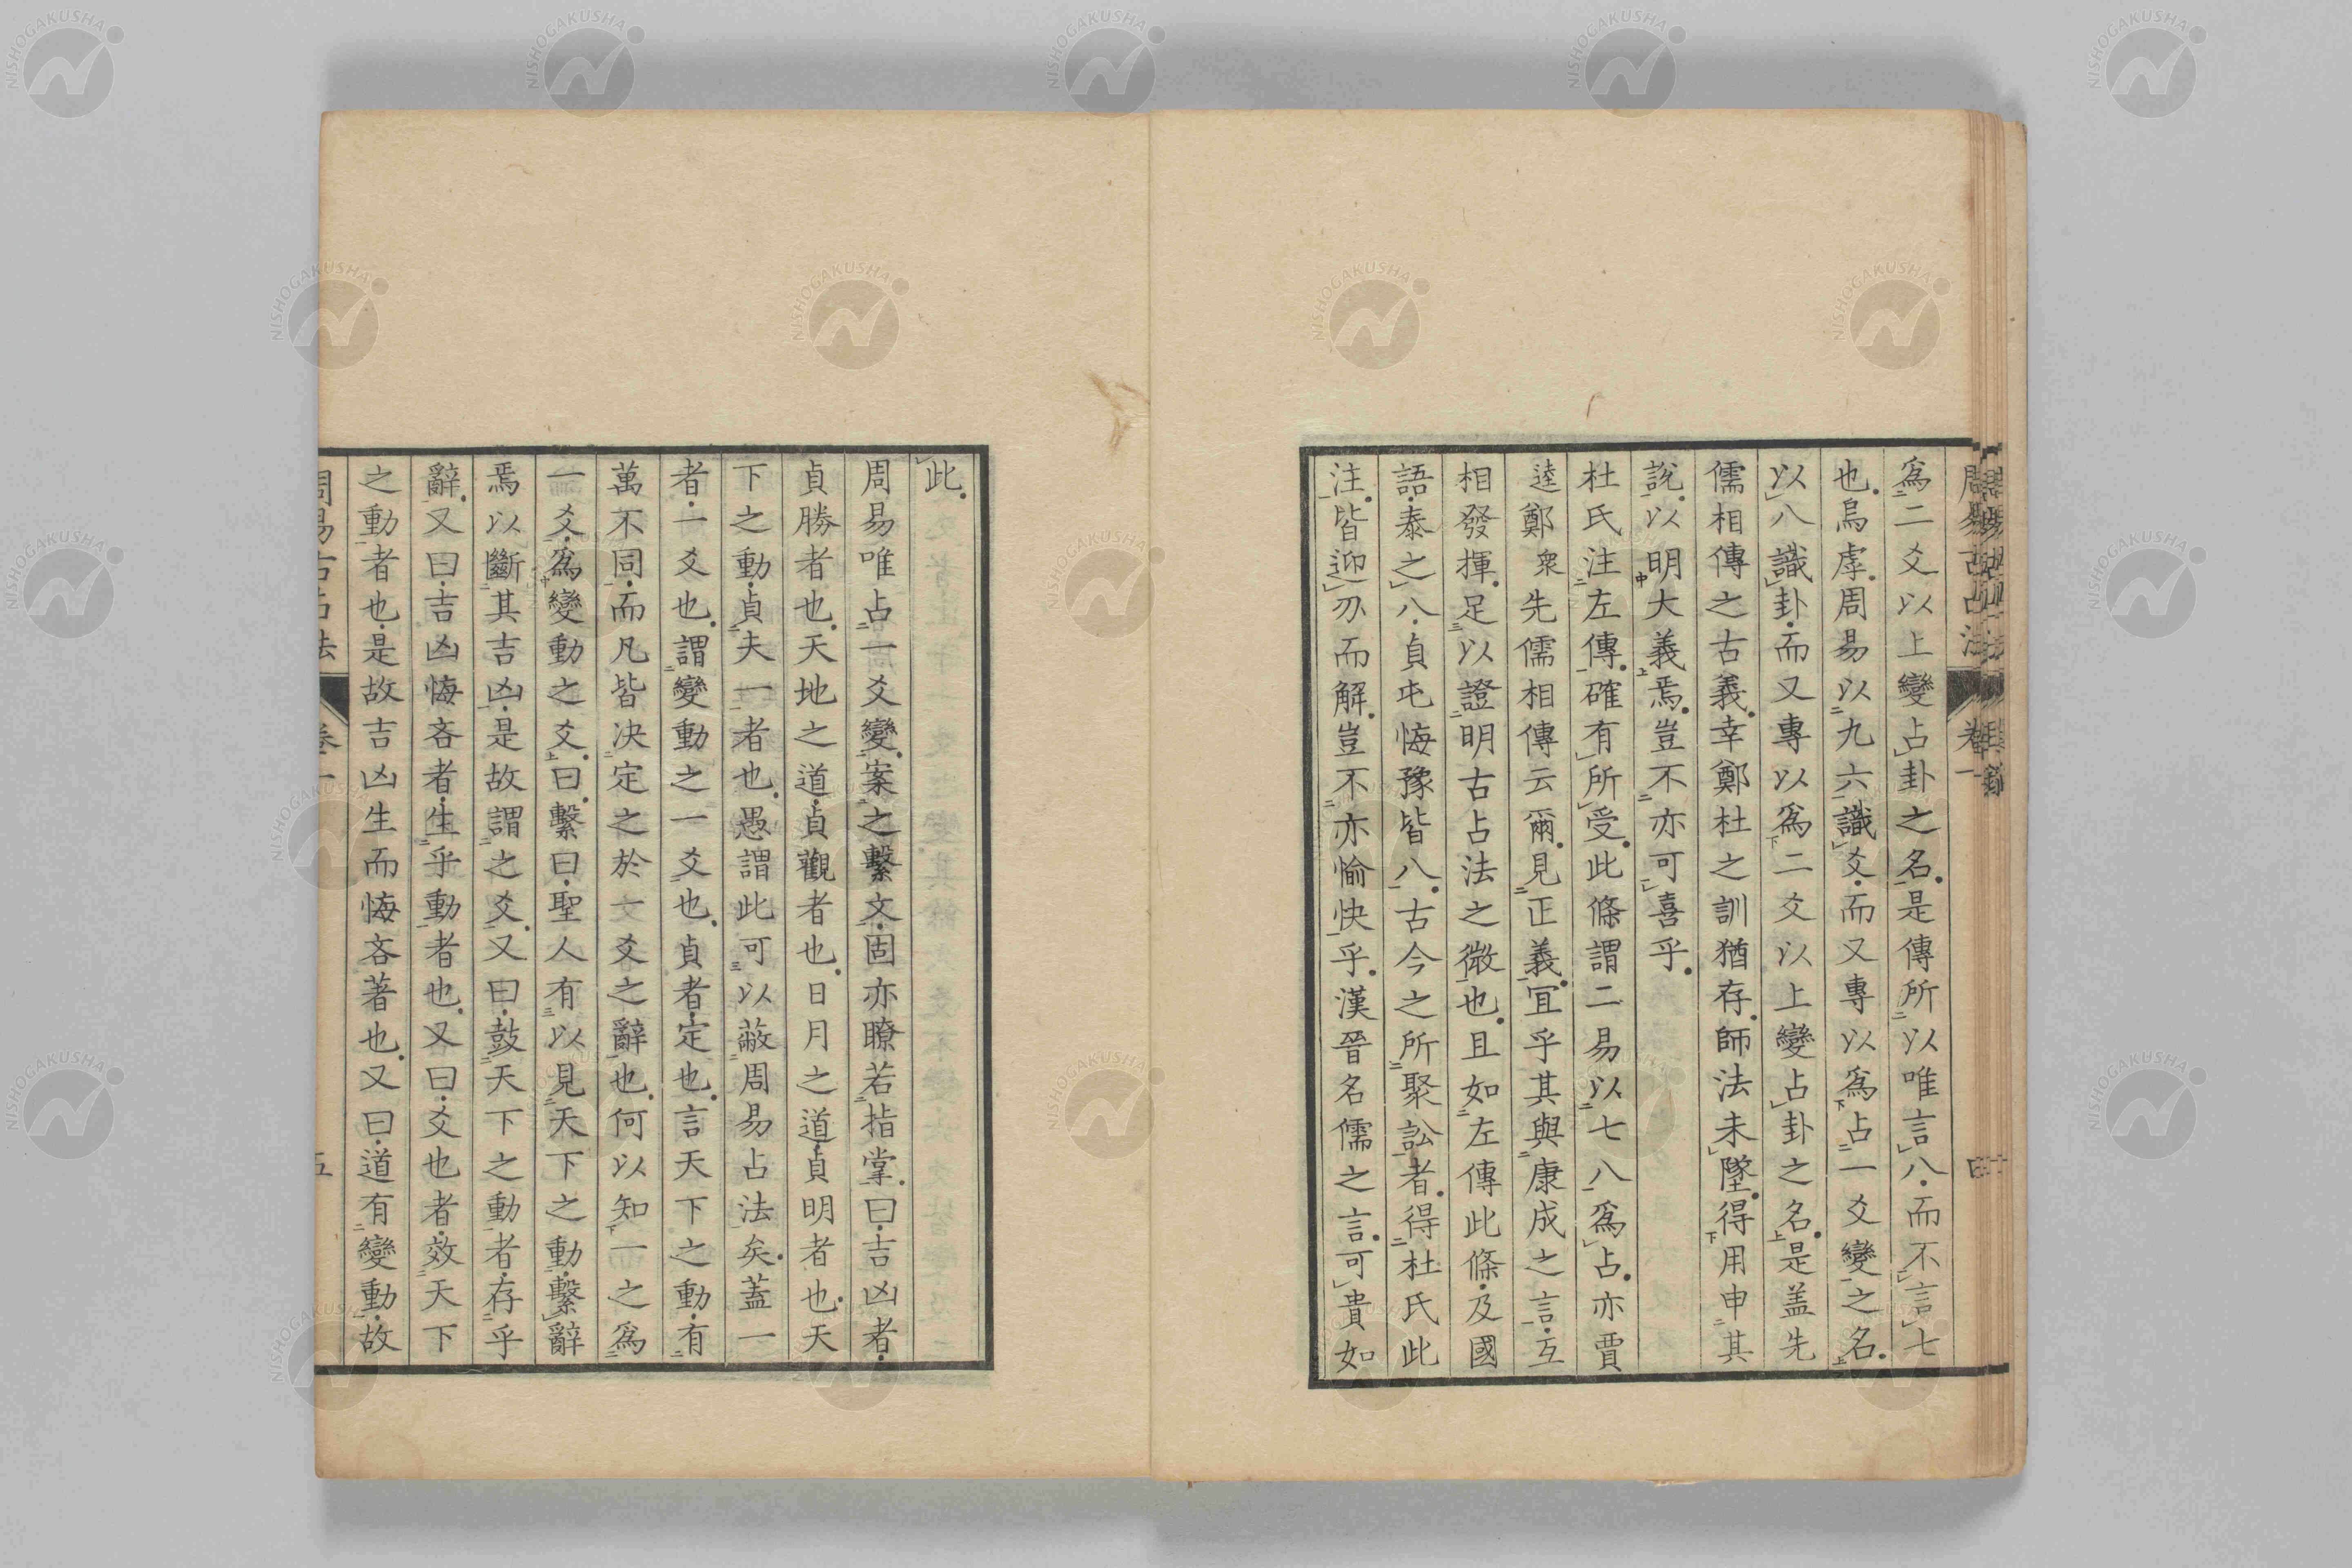 爲二爻以上變占卦之名是傳所以唯言八而不言七
也烏虖周易以九六識爻而又專以爲占一爻變之名
以八識卦而又專以爲二爻以上變占卦之名是蓋先
儒相傳之古義幸鄭杜之訓猶存師法未墜得用申其
說以明大義焉豈不亦可喜乎
杜氏注左傳確有所受此條謂二易以七八爲占亦賈
逵鄭衆先儒相傳云爾見正義宜乎其與康成之言互
相發揮足以證明古占法之微也且如左傳此條及國
語泰之八貞屯悔豫皆八古今之所聚訟者得杜氏此
注皆迎刃而解豈不亦愉快乎漢晉名儒之言可貴如
此
周易唯占一爻變案之繫文固亦瞭若指掌曰吉凶者
貞勝者也天地之道貞觀者也日月之道貞明者也天
下之動貞夫一者也愚謂此可以蔽周易占法矣蓋一
者一爻也謂變動之一爻也貞者定也言天下之動有
萬不同而凡皆決定之於一爻之辭也何以知一之爲
一爻爲變動之爻曰繫曰聖人有以見天下之動繫辭
焉以斷其吉凶是故謂之爻又曰鼓天下之動者存乎
辭又曰吉凶悔吝者生乎動者也又曰爻也者效天下
之動者也是故吉凶生而悔吝著也又曰道有變動故
周易古占法 卷一 五
NISHOGAKUSHA